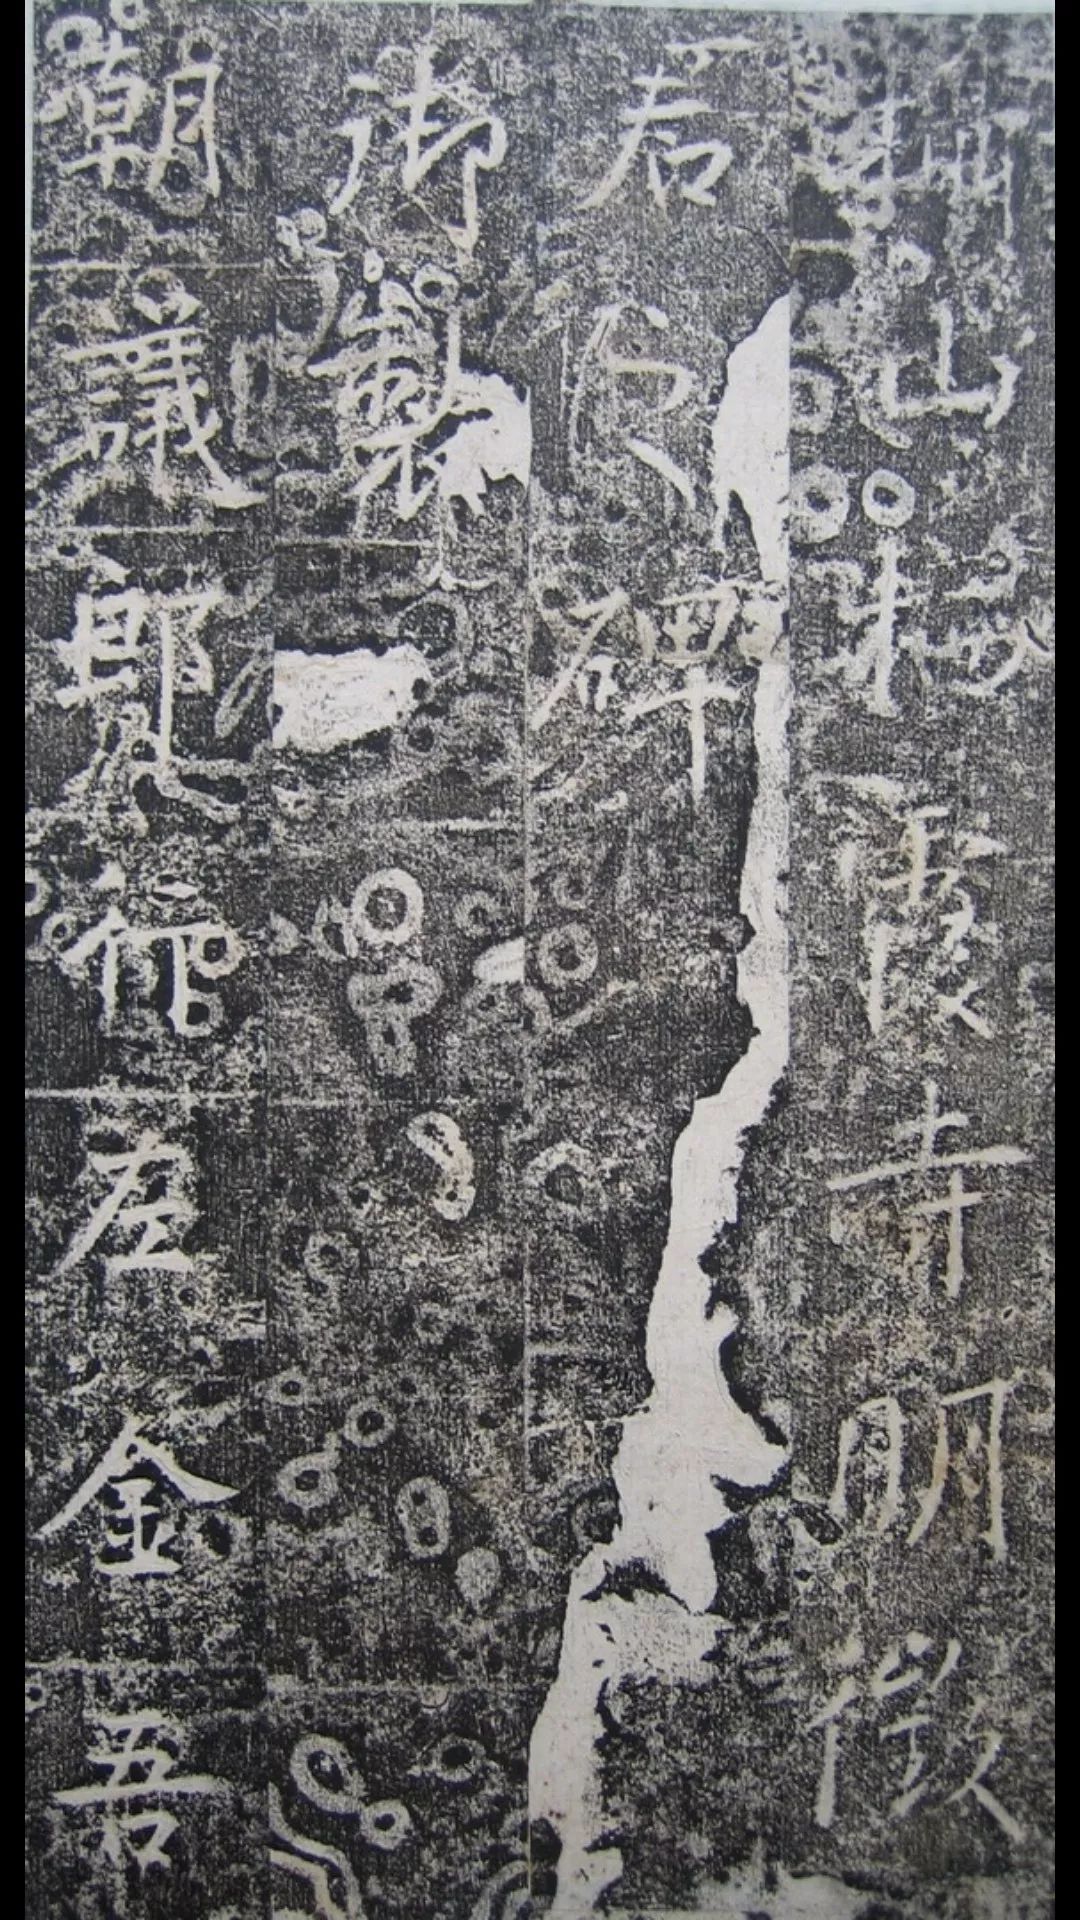 山霞寺明徵
君碑
御製
朝議郎行左金吾